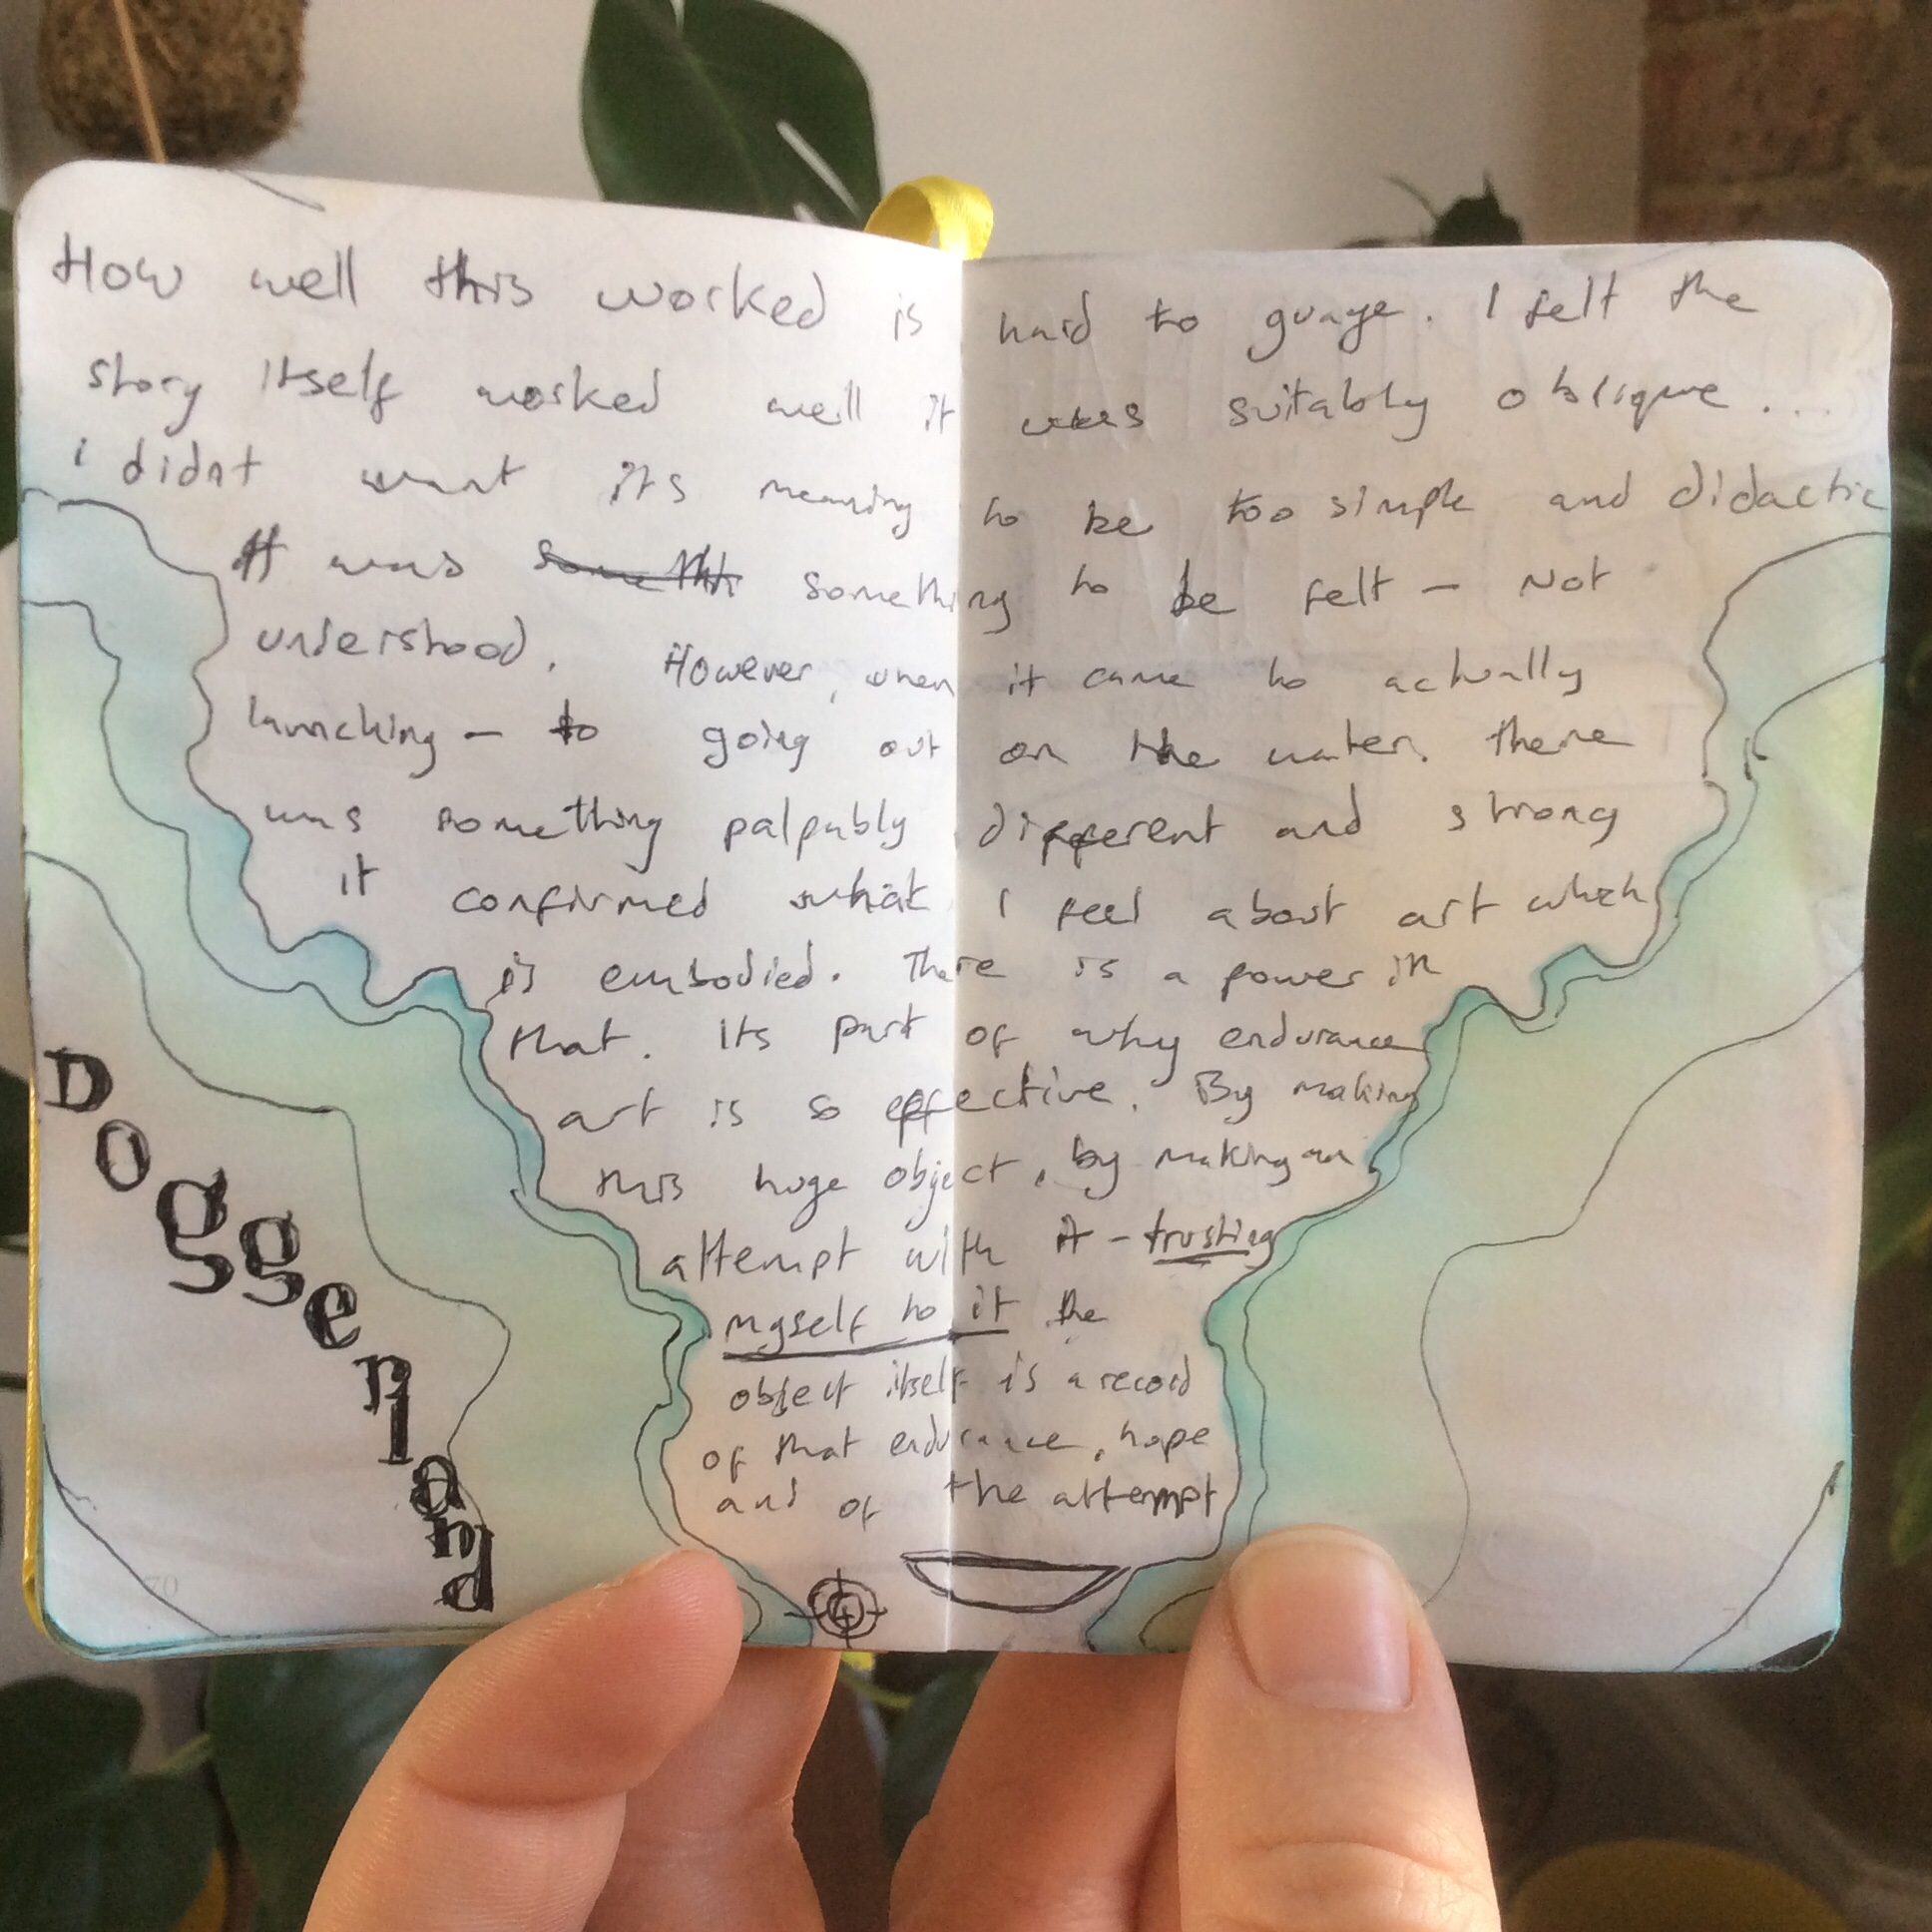 How well this worked is hard to guage. I felt the
story itself worked well it was suitably oblique...
i didnt want its meaning to be too simple and didactic
It was someth something to be felt - Not
understood. However, when it came to actually
launching - to going out on the water. there
was something palpably different and strong
it confirmed what I feel about art which
is embodied. There is a power in
that. its part of why endurance
art is so effective. By making
this huge object, by making an
attempt with it - trusting
myself to it the
object itself is a record
of that endurance, hope
and of the attempt
Doggerland
70